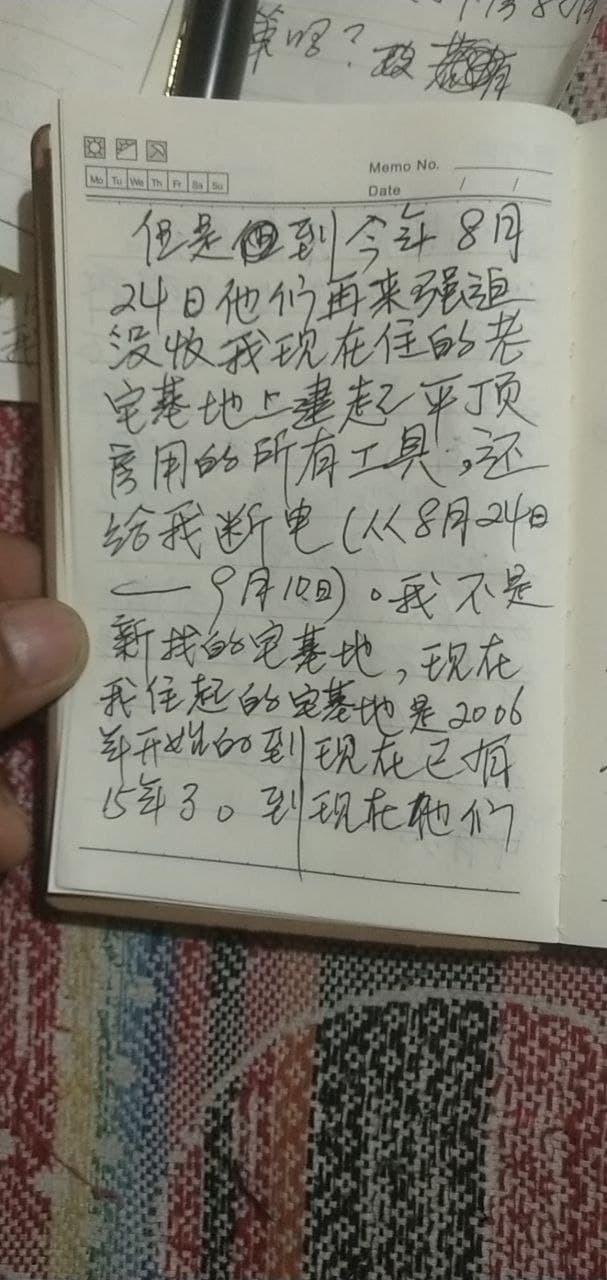 算吗？政 有
Memo No.
Mo Tu We Th Fr Sa Su
Date / /
但是到今年8月
24日他们再来强迫
没收我现在住的老
宅基地上建起平顶
房用的所有工具,还
给我断电(从8月24日
—9月10日)。我不是
新找的宅基地,现在
我住起的宅基地是2006
年开始的到现在已有
15年了。到现在他们